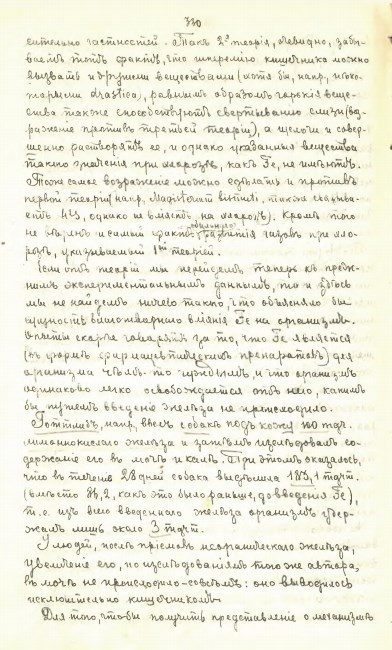 330
сительно частностей. Такъ 2ая теорія, очевидно, забы-
ваетъ тотъ фактъ, что гиперемію кишечника можно
вызвать и другими веществами (хотя бы, напр., нѣко-
торыми drastica), равнымъ образомъ горькія веще-
ства также способствуютъ свертыванію слизи (воз-
раженіе противъ третьей теоріи), а щелочи и совер-
шенно растворяютъ ее, и однако указанныя вещества
такого значенія при хлорозѣ, какъ Fe, не имѣютъ.
Тоже самое возраженіе можно сдѣлать и противъ
первой теоріи (напр., Magisterium bismuti, также связыва-
етъ HS, однако не вліяетъ на хлорозъ). Кромѣ того
не вѣренъ и самый фактъ развитія газовъ при хло-
розѣ, указываемый 1ой теоріей.
Если отъ теорій мы перейдемъ теперь къ преж-
нимъ экспериментальнымъ даннымъ, то и здѣсь
мы не найдемъ ничего такого, что объясняло бы
сущность благотворнаго вліянія Fe на организмъ.
Опыты скорѣе говорятъ за то, что Fe является
(въ формѣ фармацевтическихъ препаратовъ) для
организма чѣмъ-то чуждымъ, и что организмъ
одинаково легко освобождается отъ него, какимъ
бы путемъ введеніе желѣза не происходило.
Готтлибъ, напр., ввелъ собакѣ подъ кожу 100 mgr.
лимоннокислаго желѣза и затѣмъ изслѣдовалъ со-
держаніе его въ мочѣ и калѣ. При этомъ оказалось,
что въ теченіе 28 дней собака выдѣлила
т.е. изъ всего введеннаго желѣза организмъ удер-
жалъ лишь около 3 mgr.
У людей, послѣ пріемовъ неорганическаго желѣза,
увеличеніе его, по изслѣдованіямъ того же автора,
въ мочѣ не происходило совсѣмъ: оно выводилось
исключительно кишечникомъ.
Для того, чтобы получить представленіе о механизмѣ